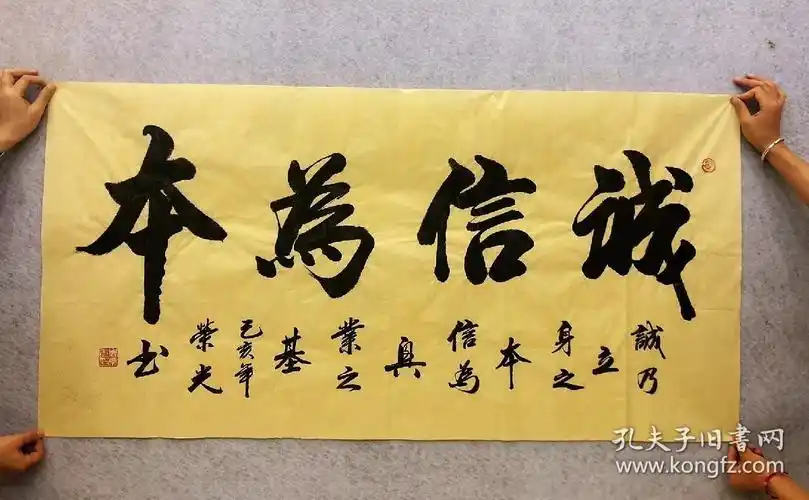 誠信為本
誠乃立身之本信為興業之基
己亥年榮光书
孔夫子旧書网
www.kongfz.com